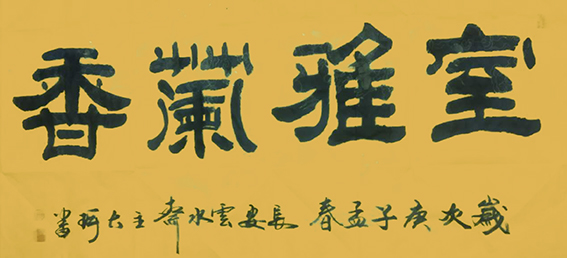 室雅蘭香
歲次庚子孟春 長安雲水齋主大珂書